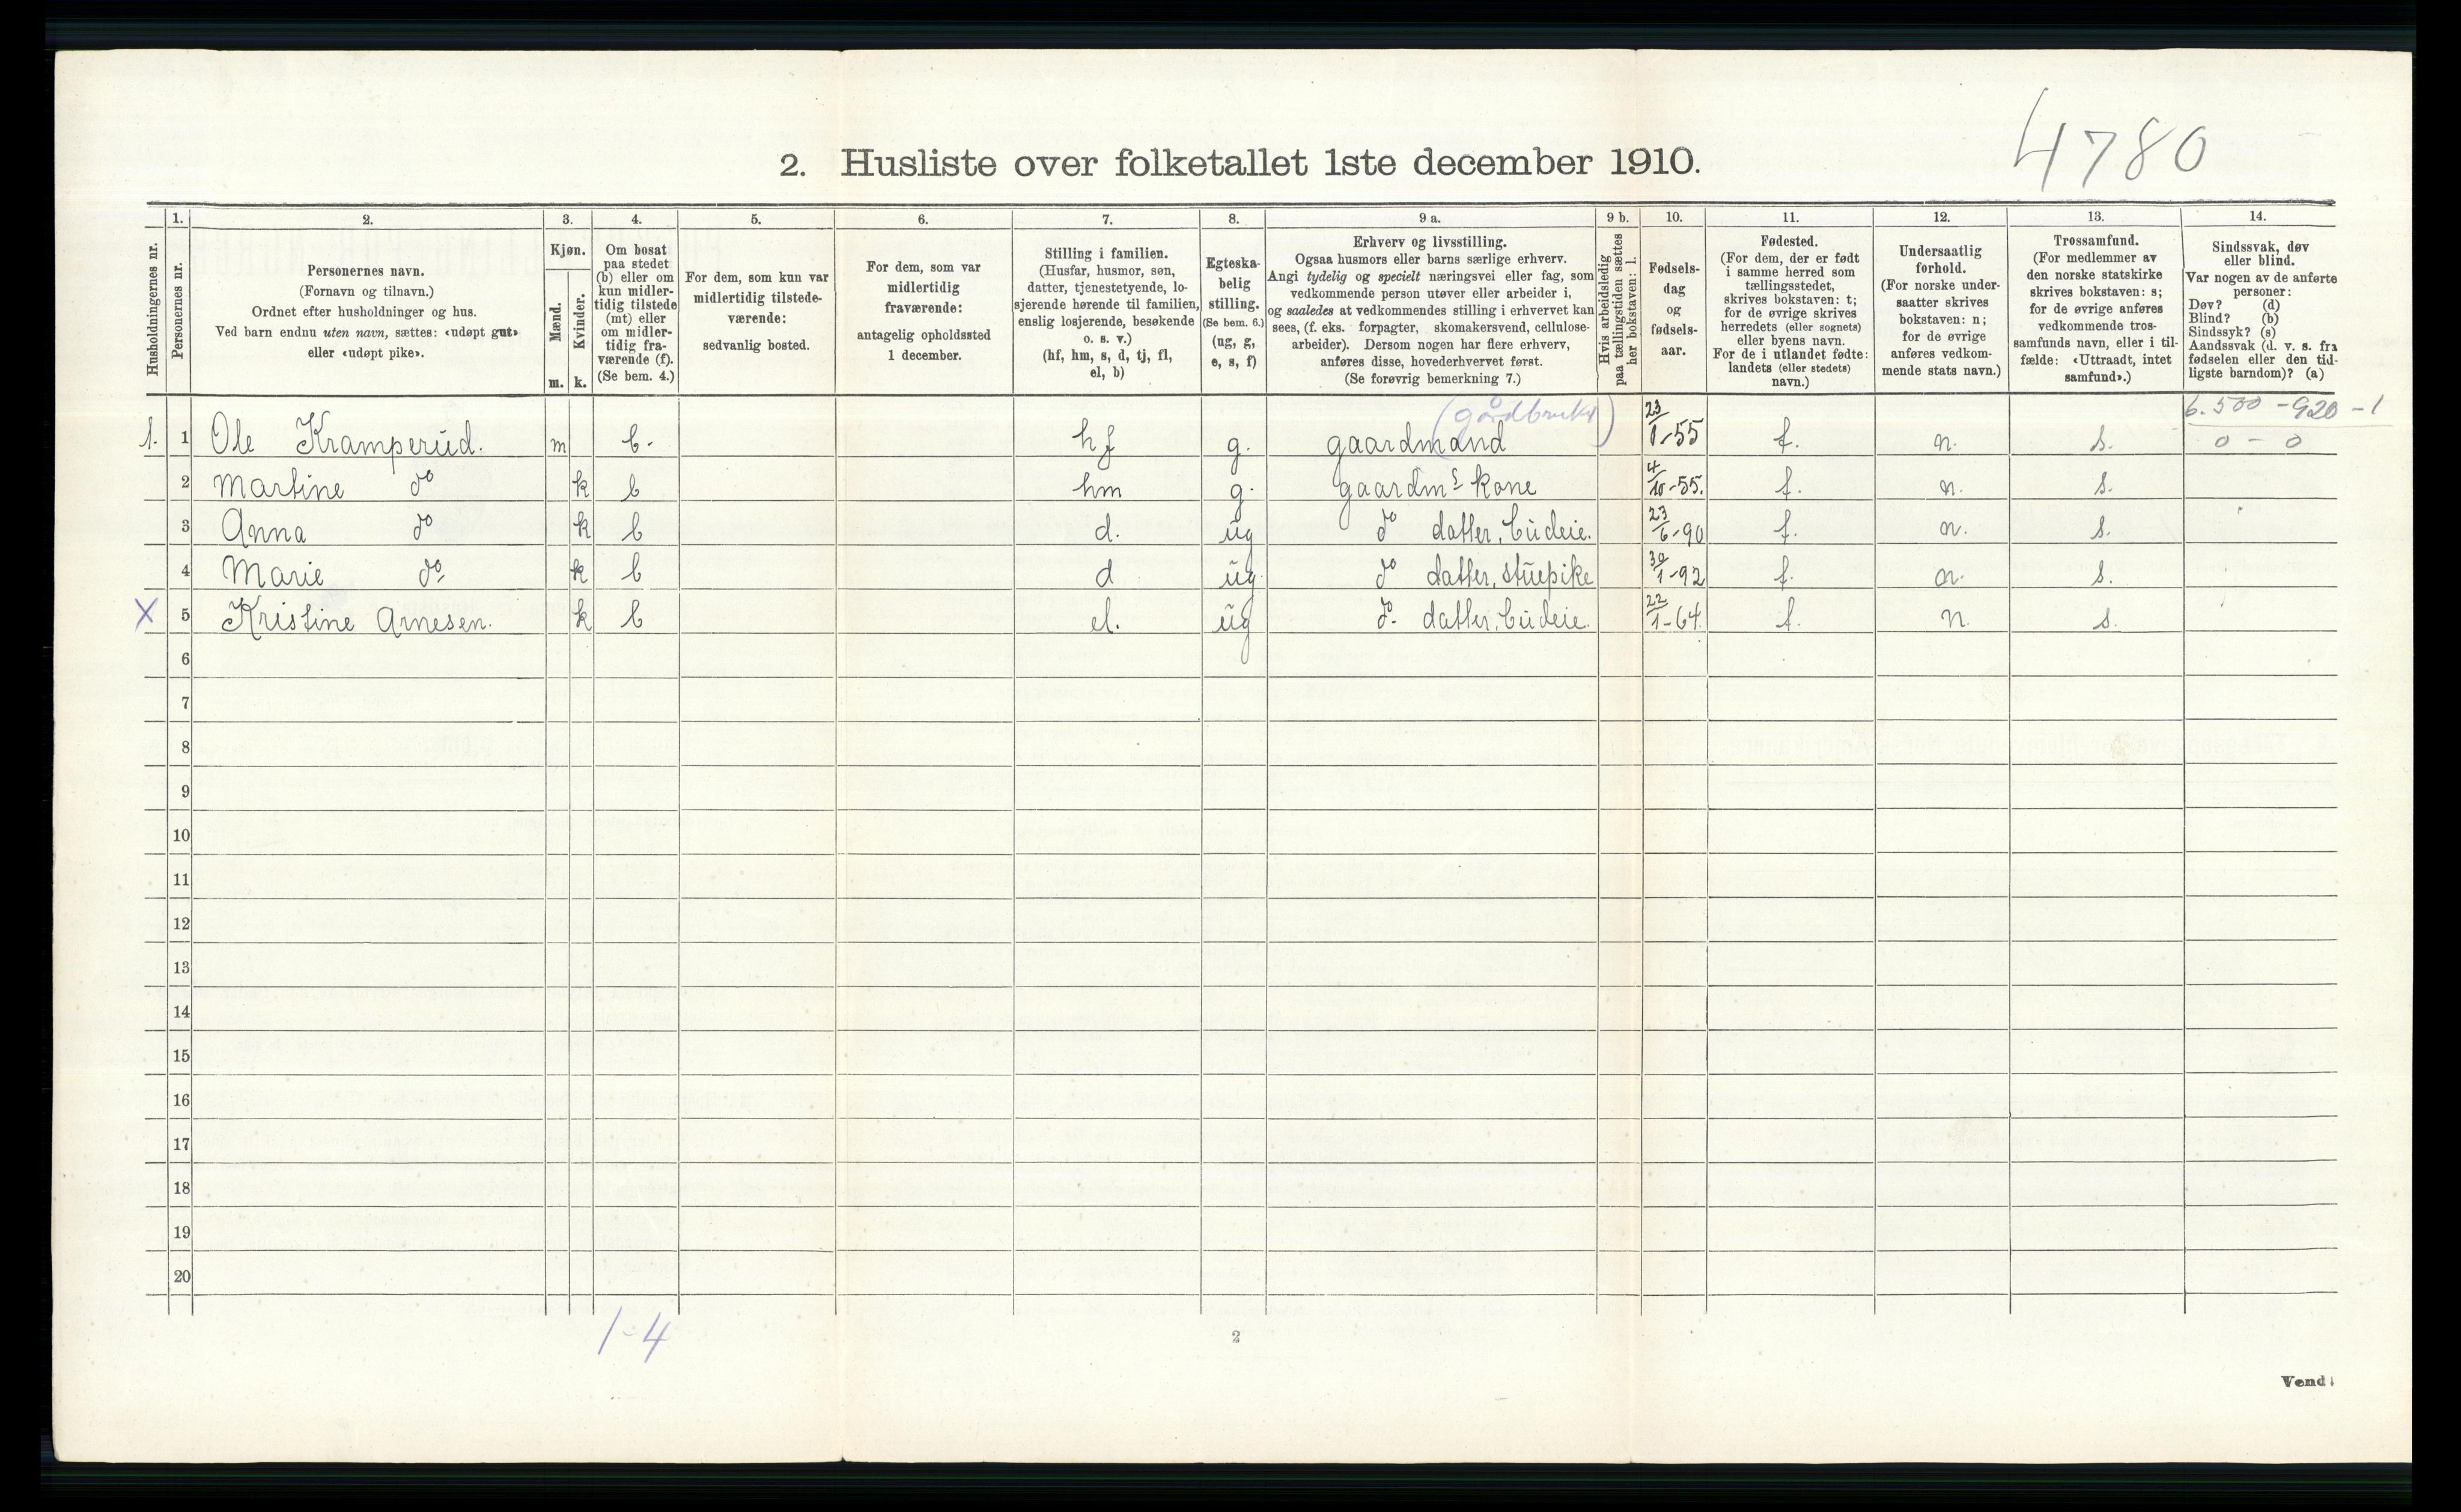 4780
2. Husliste over folketallet 1ste december 1910.
Husholdningernes nr.
1.
Personernes nr.
2.
Personernes navn.
(Fornavn og tilnavn.)
Ordnet efter husholdninger og hus.
Ved barn endnu uten navn, sættes: «udøpt gut»
eller «udøpt pike».
3.
Kjøn.
Mænd.
Kvinder.
m. k.
4.
Om bosat
paa stedet
(b) eller om
kun midler-
tidig tilstede
(mt) eller
om midler-
tidig fra-
værende (f).
(Se bem. 4.)
5.
For dem, som kun var
midlertidig tilstede-
værende:
sedvanlig bosted.
6.
For dem, som var
midlertidig
fraværende:
antagelig opholdssted
1 december.
7.
Stilling i familien.
(Husfar, husmor, søn,
datter, tjenestetyende, lo-
sjerende hørende til familien,
enslig losjerende, besøkende
o. s. v.)
(hf, hm, s, d, tj, fl,
el, b)
8.
Egteska-
belig
stilling.
(Se bem. 6.)
(ug, g,
e, s, f)
9 a.
Erhverv og livsstilling.
Ogsaa husmors eller barns særlige erhverv.
Angi tydelig og specielt næringsvei eller fag, som
vedkommende person utøver eller arbeider i,
og saaledes at vedkommendes stilling i erhvervet kan
sees, (f. eks. forpagter, skomakersvend, cellulose-
arbeider). Dersom nogen har flere erhverv,
anføres disse, hovederhvervet først.
(Se forøvrig bemerkning 7.)
9 b.
Hvis arbeidsledig
paa tællingstiden sættes
her bokstaven: l.
10.
Fødsels-
dag
og
fødsels-
aar.
11.
Fødested.
(For dem, der er født
i samme herred som
tællingsstedet,
skrives bokstaven: t;
for de øvrige skrives
herredets (eller sognets)
eller byens navn.
For de i utlandet fødte:
landets (eller stedets)
navn.)
12.
Undersaatlig
forhold.
(For norske under-
saatter skrives
bokstaven: n;
for de øvrige
anføres vedkom-
mende stats navn.)
13.
Trossamfund.
(For medlemmer av
den norske statskirke
skrives bokstaven: s;
for de øvrige anføres
vedkommende tros-
samfunds navn, eller i til-
fælde: «Uttraadt, intet
samfund».)
14.
Sindssvak, døv
eller blind.
Var nogen av de anførte
personer:
Døv? (d)
Blind? (b)
Sindssyk? (s)
Aandssvak (d. v. s. fra
fødselen eller den tid-
ligste barndom)? (a)
6.500 - 920 - 1
(gårdbruker)
1. 1 Ole Kramperud. m b. hf g. gaardmand 23/1-55 t. n. s. 0 - 0
2 Martine do k b hm g. gaardms kone 4/10-55. t. n. s.
3 Anna do k b d. ug do datter, budeie. 23/6-90 t. n. s.
4 Marie do k b d ug. do datter, stuepike 30/1-92 t. n. s.
X 5 Kristine Arnesen. k b el. ug do datter, budeie. 22/1-64. t. n. s.
6
7
8
9
10
11
12
13
14
15
16
17
18
19
20
1-4
2
Vend!